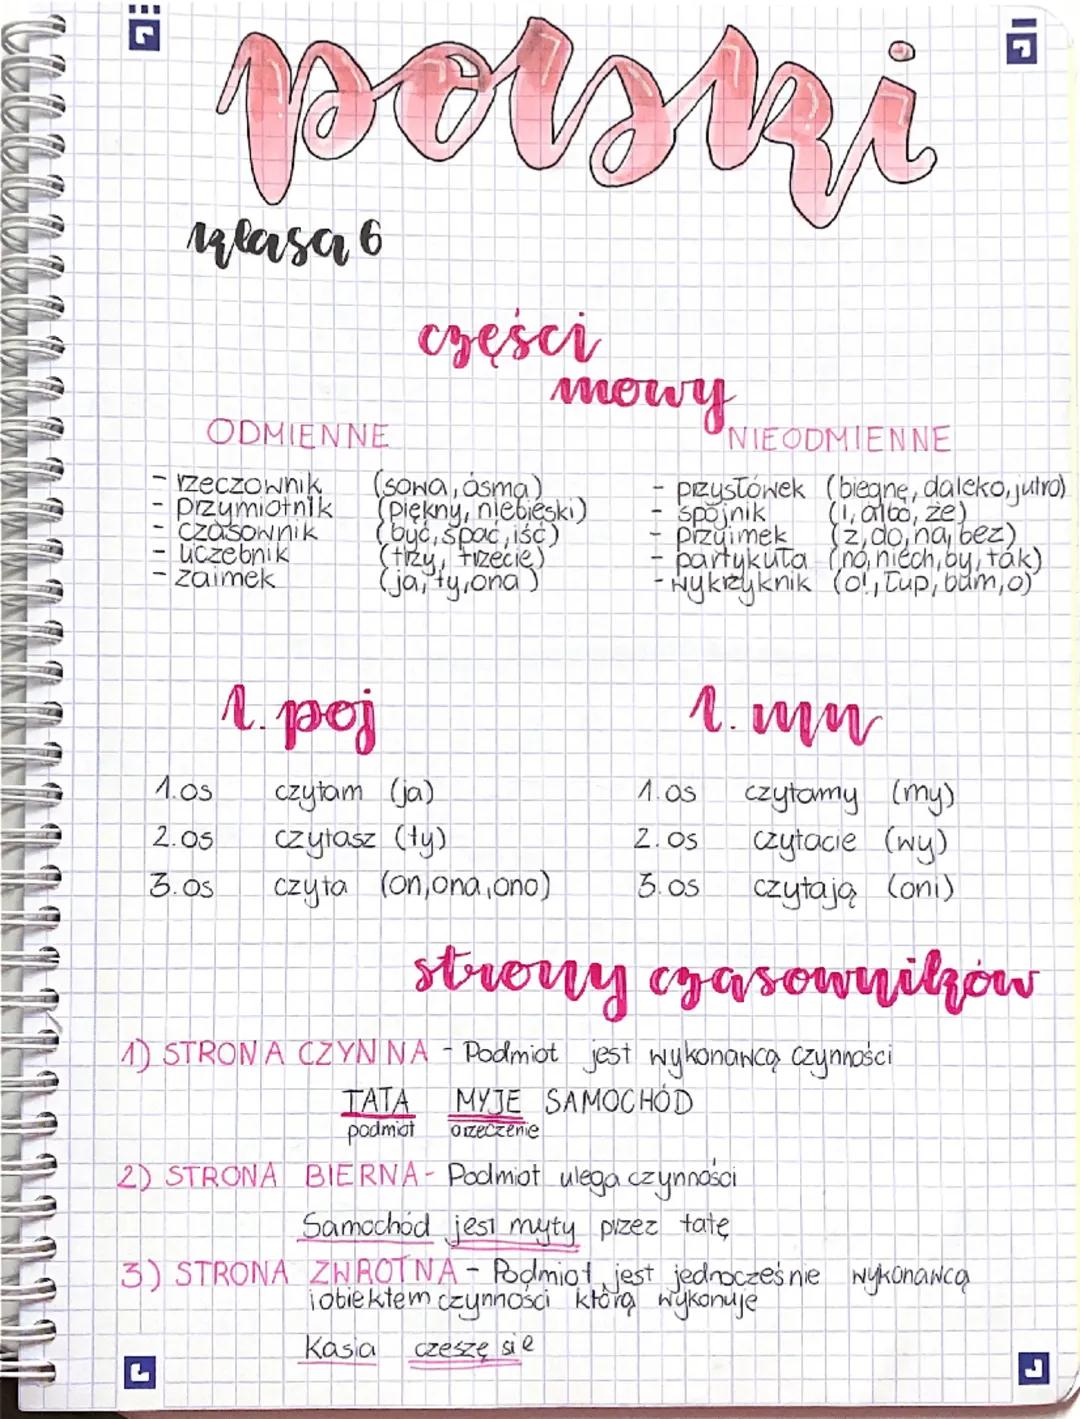 polski
klasa 6
części
mowy
ODMIENNE
- rzeczownik (sowa, ósma)
- przymiotnik (piękny, niebieski)
- czasownik (być, spać, iść)
- uczebnik (trzy, trzecie)
- zaimek (ja, ty, ona)
NIEODMIENNE
- przysłówek (biegnę, daleko, jutro)
- spójnik (i, albo, że)
- przyimek (z, do, na, bez)
- partykuła (no, niech, by, tak)
- wykrzyknik (o!, łup, bum, o)
l. poj
1.os czytam (ja)
2.os czytasz (ty)
3.os czyta (on, ona, ono)
l. mn
1.os czytamy (my)
2.os czytacie (wy)
3.os czytają (oni)
strony czasowników
1) STRONA CZYNNA - Podmiot jest wykonawcą czynności
TATA MYJE SAMOCHÓD
podmiot orzeczenie
2) STRONA BIERNA - Podmiot ulega czynności
Samochód jest myty przez tatę
3) STRONA ZWROTNA - Podmiot jest jednocześnie wykonawcą
i obiektem czynności którą wykonuje
Kasia czeszę się